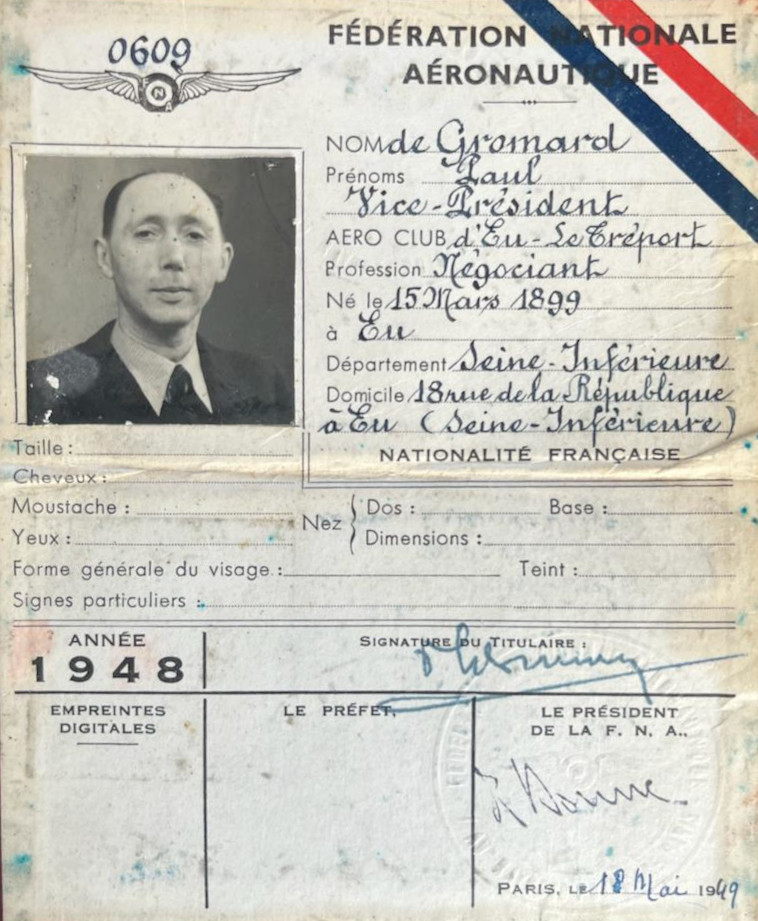 0609
N
A
FÉDÉRATION NATIONALE
AÉRONAUTIQUE
NOM de Gromard
Prénoms Paul
Vice-Président
AERO CLUB d'Eu-Le Tréport
Profession Négociant
Né le 15 Mars 1899
à Eu
Département Seine-Inférieure
Domicile 18 rue de la République
à Eu (Seine-Inférieure)
NATIONALITÉ FRANÇAISE
Taille :
Cheveux :
Moustache :
Yeux :
Nez
Dos :
Base :
Dimensions :
Forme générale du visage :
Teint :
Signes particuliers :
ANNÉE
1948
SIGNATURE DU TITULAIRE :
EMPREINTES
DIGITALES
LE PRÉFET,
LE PRÉSIDENT
DE LA F. N. A.,
PARIS, LE 18 Mai 1949